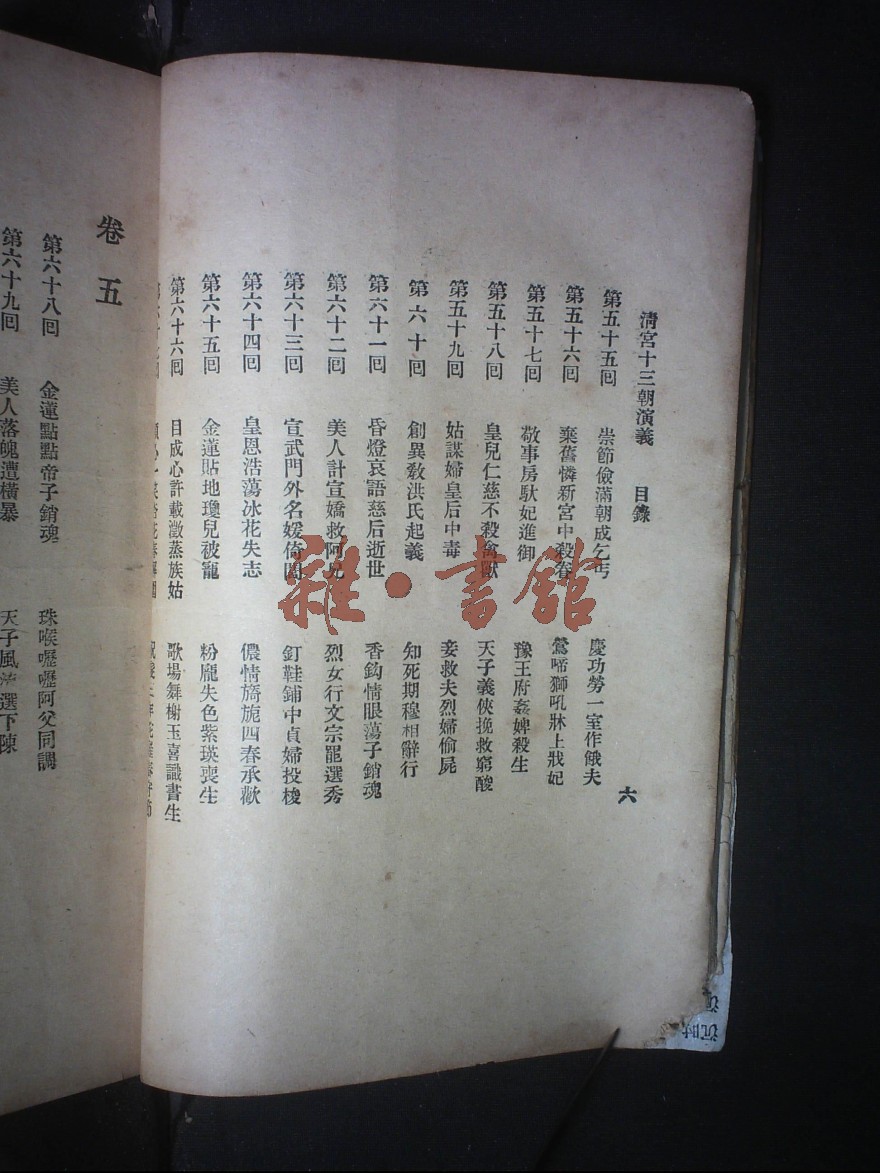 清宮十三朝演義 目錄 六
第五十五囘 崇節儉滿朝成乞丐 慶功勞一室作餓夫
第五十六囘 棄舊憐新宮中殺眷 鶯啼獅吼牀上戕妃
第五十七囘 敬事房馱妃進御 豫王府姦婢殺生
第五十八囘 皇兒仁慈不殺禽獸 天子義俠挽救窮酸
第五十九囘 姑謀婦皇后中毒 妾救夫烈婦偷屍
第六十囘 創異敎洪氏起義 知死期穆相辭行
第六十一囘 昏燈哀語慈后逝世 香鈎情眼蕩子銷魂
第六十二囘 美人計宣嬌救阿兄 烈女行文宗罷選秀
第六十三囘 宣武門外名媛倚閭 釘鞋鋪中貞婦投梭
第六十四囘 皇恩浩蕩冰花失志 儂情旖旎四春承歡
第六十五囘 金蓮貼地瓊兒被寵 粉龐失色紫瑛喪生
第六十六囘 目成心許載澂蒸族姑 歌場舞榭玉喜識書生
卷五
第六十八囘 金蓮點點帝子銷魂 珠喉嚦嚦阿父同調
第六十九囘 美人落魄遭橫暴 天子風流選下陳
雜·書館
沉时